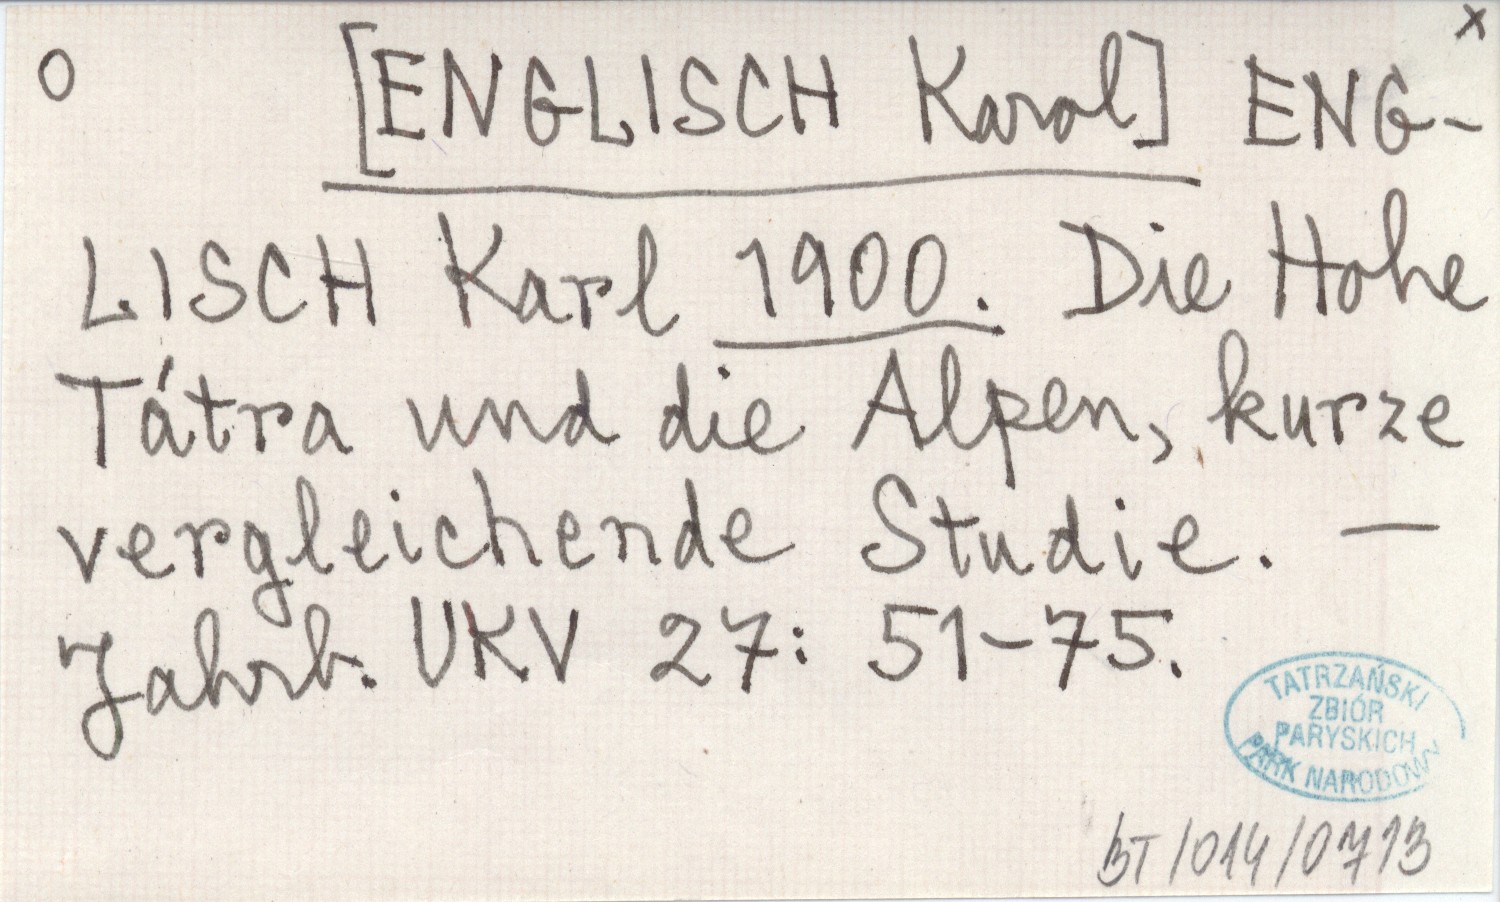 O [ENGLISCH Karol] ENG- x
LISCH Karl 1900. Die Hohe
Tátra und die Alpen, kurze
vergleichende Studie. —
Jahrb. UKV 27: 51-75.
TATRZAŃSKI
ZBIÓR
PARYSKICH
PARK NARODOWY
BT/014/0713